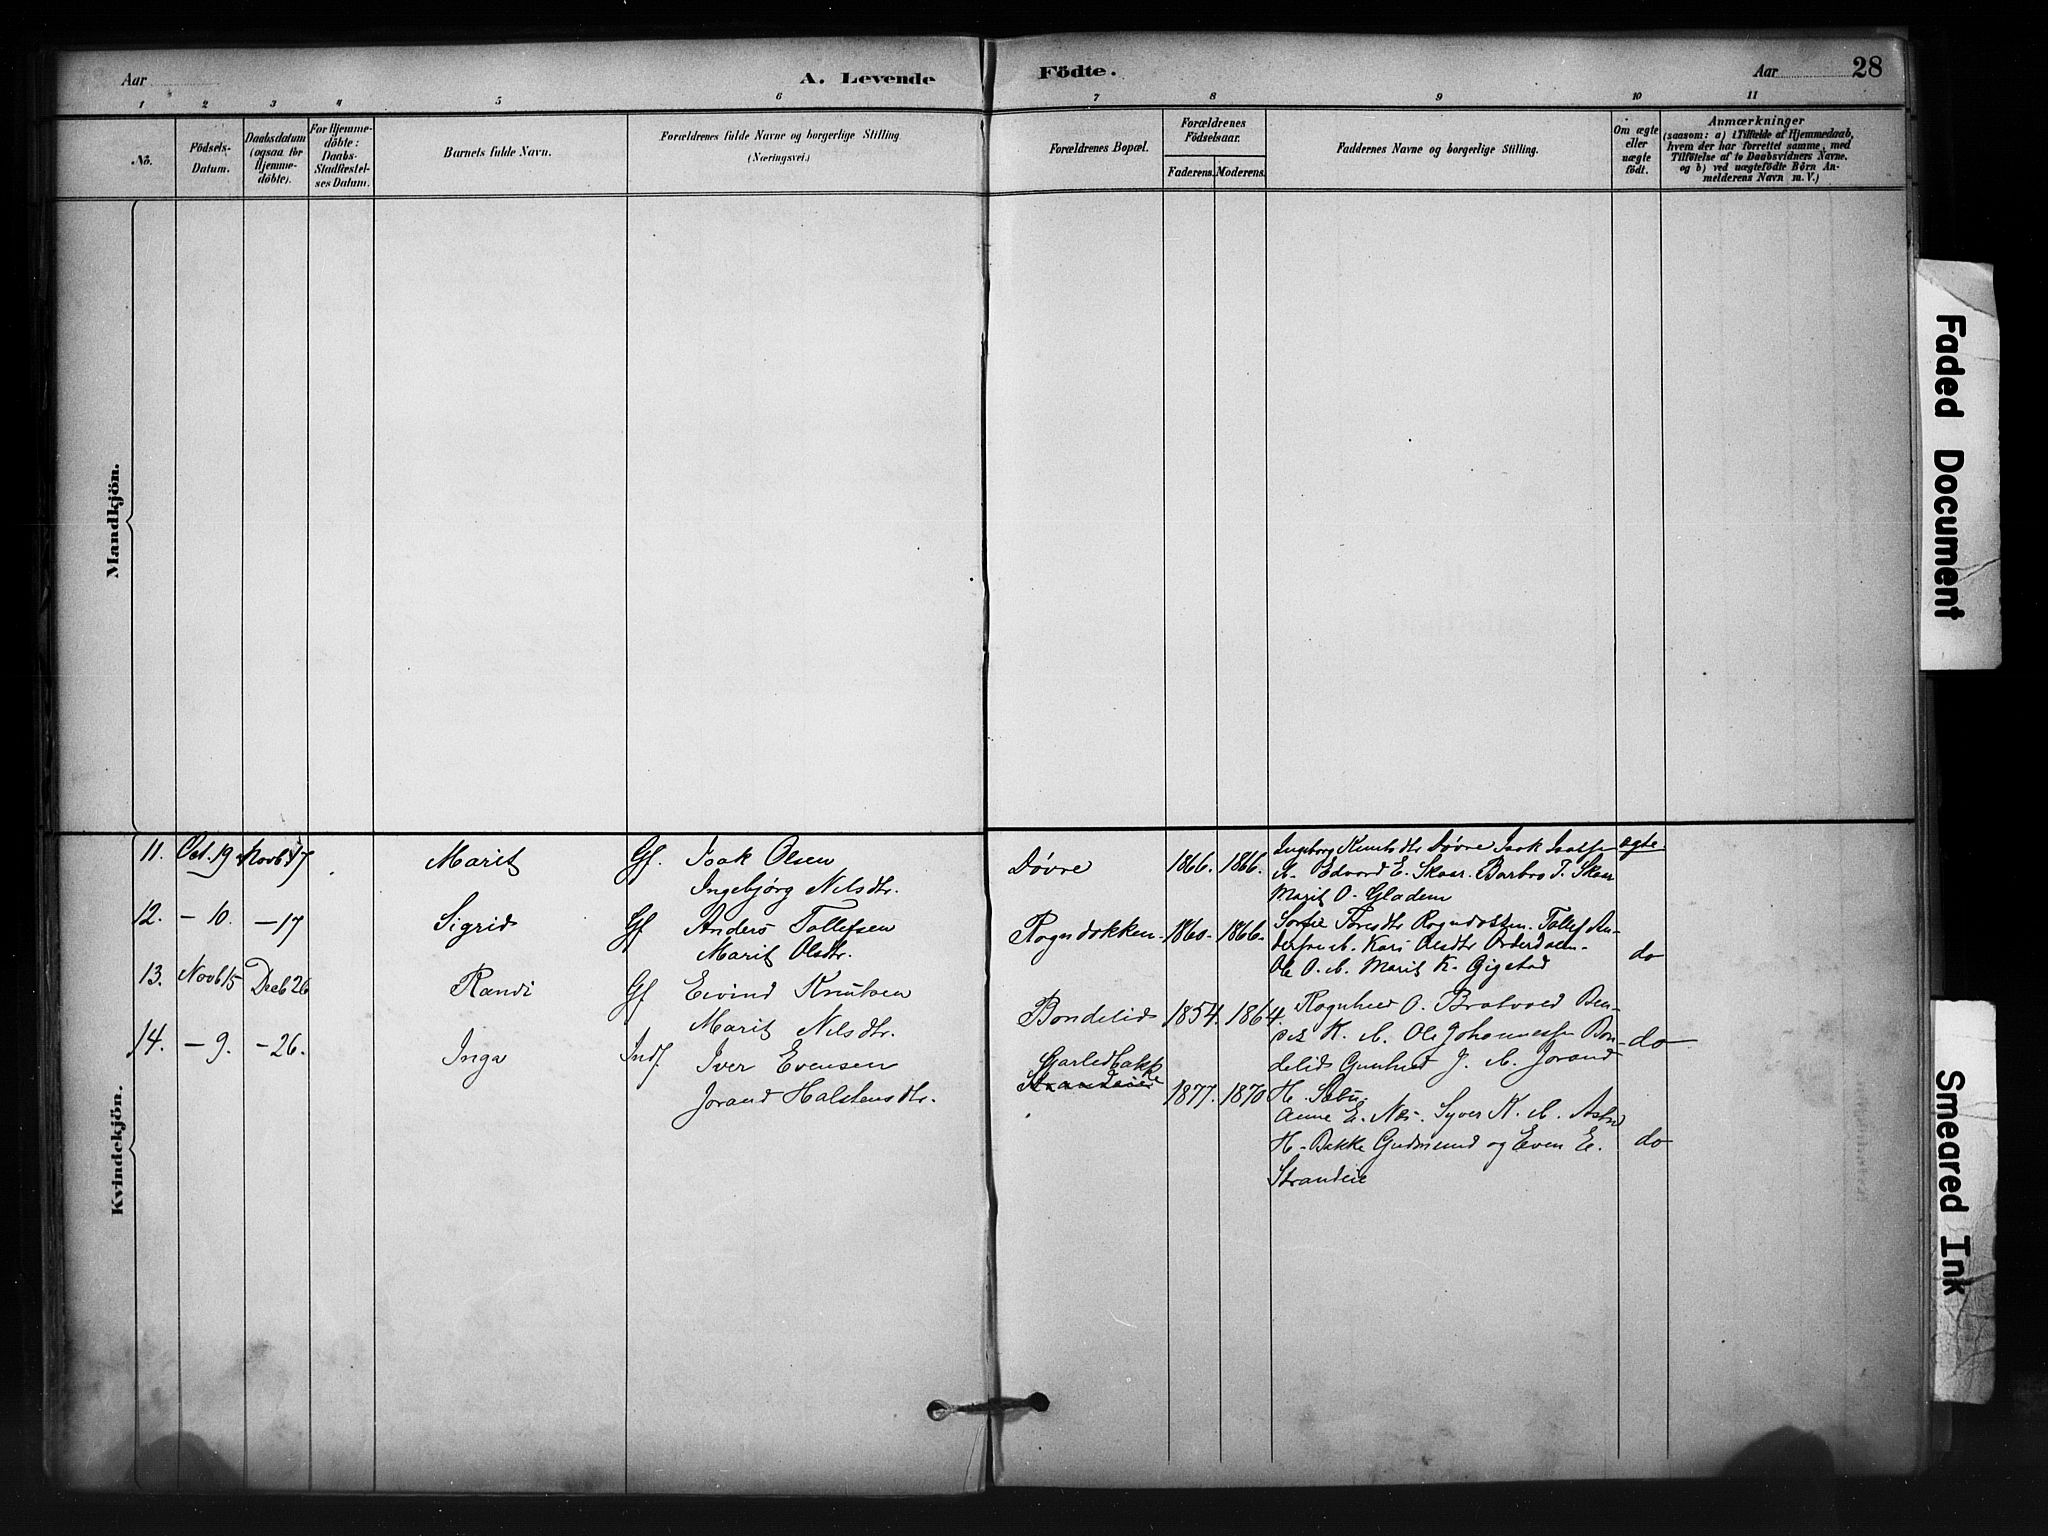 Aar
A. Levende Födte.
Aar 28
1 2 3 4 5 6 7 8 9 10 11
No.
Födsels-
Datum.
Daabsdatum
(ogsaa for
Hjemme-
döbte).
For Hjemme-
döbte:
Daabs-
Stadfæstel-
ses Datum.
Barnets fulde Navn.
Forældrenes fulde Navne og borgerlige Stilling
(Næringsvei.)
Forældrenes Bopæl.
Forældrenes
Födselsaar.
Faderens. Moderens.
Faddernes Navne og borgerlige Stilling.
Om ægte
eller
uægte
födt.
Anmærkninger
(saasom: a) i Tilfælde af Hjemmedaab,
hvem der har forrettet samme, med
Tilföielse af to Daabsvidners Navne.
og b) ved uægtefödte Börn An-
melderens Navn m. V.)
Mandkjön.
Kvindekjön.
11. Oct. 19 Novb 17 Marit Gf. Isak Olsen
Ingebjørg Nilsdtr.
Døvre 1866. 1866.
Ingeborg Knutsdtr Døvre Isak
Edvard E. Skaar. Barbro T. Skaar
Marit O. Gladem
ægte
12. - 10. - 17 Sigrid Gf Anders Tollefsen
Marit Olsdtr.
Rogndokken 1860. 1866.
Kari Olsdtr
Ole O. Marit K. Gigstad
do
13. Novb 15 Decb 26 Randi Gf Eivind Knutsen
Marit Nilsdtr.
Bondelid 1854. 1864.
Ragnhild O. Bratvold
K. Ole Johannessen Bon-
delid Gunhild J. Jorand
H. Sæbu
do
14. - 9. - 26. Inga Indf. Iver Evensen
Jorand Halstensdtr.
Garlidbakke
Strandeie
1877. 1870
Anne E. Næs. Syver K.
H. Bakke Gudmund og Even E.
Strandeie
do
Faded Document
Smeared Ink